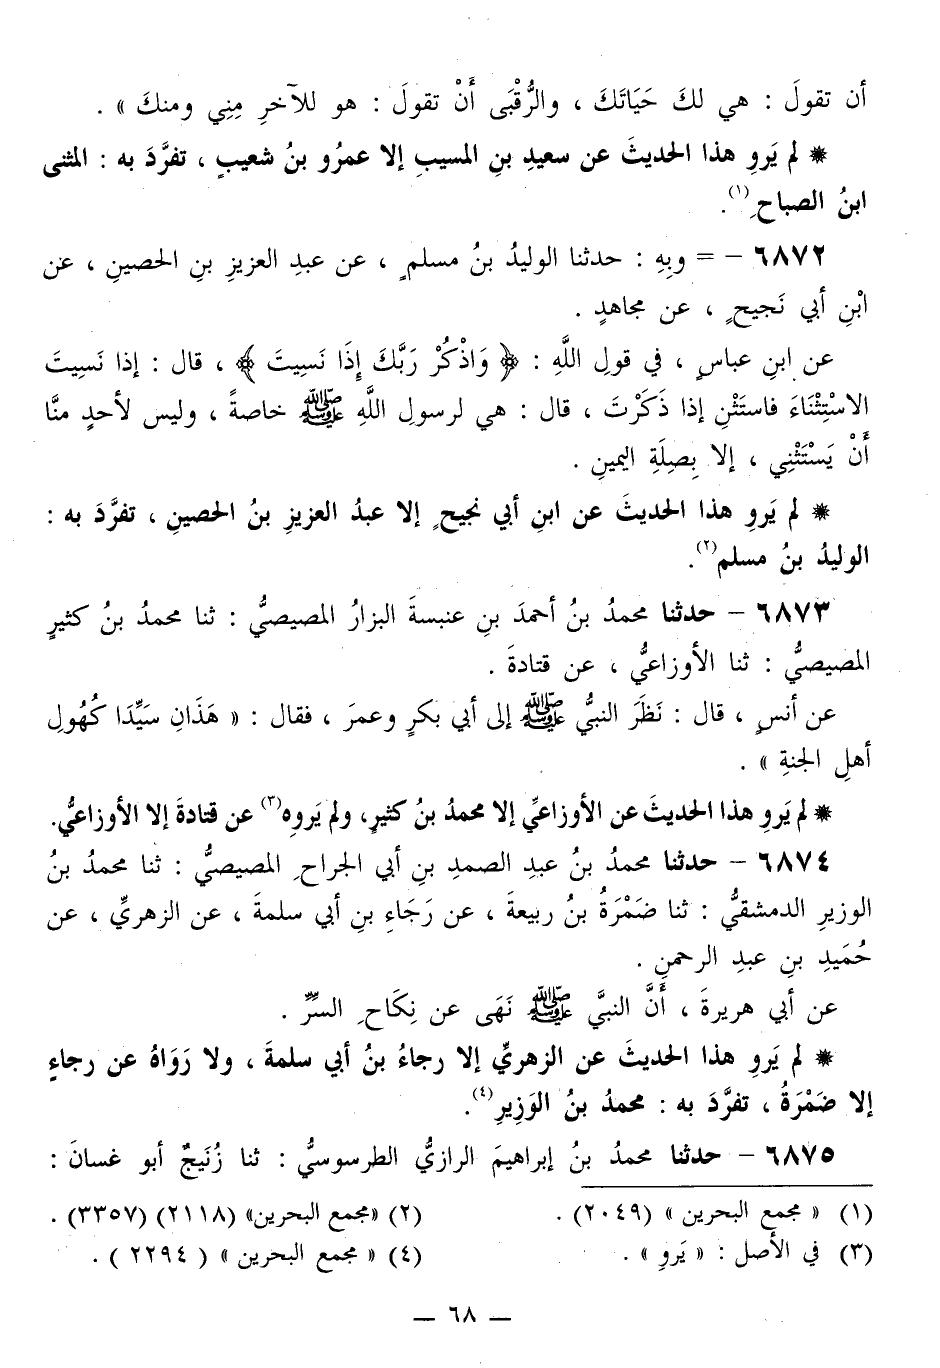 أن تقولَ : هي لكَ حَيَاتَكَ ، والرُّقْبَى أَنْ تقولَ : هو للآخرِ مِنِي ومنكَ » .
* لم يَروِ هذا الحديثَ عن سعيدِ بنِ المسيبِ إلا عمرُو بنُ شعيبٍ ، تفرَّدَ به : المثنى
ابنُ الصباحِ(١).
٦٨٧٢ – = وبِهِ : حدثنا الوليدُ بنُ مسلمٍ ، عن عبدِ العزيزِ بنِ الحصينِ ، عن
ابْنِ أبي نَجيحٍ ، عن مجاهدٍ .
عن ابنِ عباسٍ ، في قولِ اللَّهِ : ﴿ وَاذْكُرْ رَبَّكَ إِذَا نَسِيتَ ﴾ ، قال : إذا نَسِيتَ
الاسْتِثْنَاءَ فاستَثْنِ إذا ذَكَرْتَ ، قال : هي لرسولِ اللَّهِ ﷺ خاصةً ، وليس لأحدٍ منَّا
أَنْ يَسْتَثْنِي ، إلا بِصِلَةِ اليمينِ .
* لم يَروِ هذا الحديثَ عن ابنِ أبي نجيحٍ إلا عبدُ العزيزِ بنُ الحصينِ ، تفرَّدَ به :
الوليدُ بنُ مسلم(٢).
٦٨٧٣ – حدثنا محمدُ بنُ أحمدَ بنِ عنبسةَ البزارُ المصيصيُّ : ثنا محمدُ بنُ كثيرٍ
المصيصيُّ : ثنا الأوزاعيُّ ، عن قتادةَ .
عن أنسٍ ، قال : نَظَرَ النبيُّ ﷺ إلى أبي بكرٍ وعمرَ ، فقال : « هَذَانِ سَيِّدَا كُهُولِ
أهلِ الجنةِ » .
* لم يَروِ هذا الحديثَ عن الأوزاعيِّ إلا محمدُ بنُ كثيرٍ، ولم يَروِه(٣) عن قتادةَ إلا الأوزاعيُّ.
٦٨٧٤ – حدثنا محمدُ بنُ عبدِ الصمدِ بنِ أبي الجراحِ المصيصيُّ : ثنا محمدُ بنُ
الوزيرِ الدمشقيُّ : ثنا ضَمْرَةُ بنُ ربيعةَ ، عن رَجَاءِ بنِ أبي سلمةَ ، عن الزهريِّ ، عن
حُمَيدِ بنِ عبدِ الرحمنِ .
عن أبي هريرةَ ، أَنَّ النبيَّ ﷺ نَهَى عن نِكَاحِ السِّرِّ .
* لم يَروِ هذا الحديثَ عن الزهريِّ إلا رجاءُ بنُ أبي سلمةَ ، ولا رَوَاهُ عن رجاءٍ
إلا ضَمْرَةُ ، تفرَّدَ به : محمدُ بنُ الوَزِيرِ(٤).
٦٨٧٥ – حدثنا محمدُ بنُ إبراهيمَ الرازيُّ الطرسوسيُّ : ثنا زُنَيجٌ أبو غسانَ :
(١) « مجمع البحرين » (٢٠٤٩) .
(٢) «مجمع البحرين» (٢١١٨) (٣٣٥٧) .
(٣) في الأصل : « يَروِ » .
(٤) « مجمع البحرين » ( ٢٢٩٤ ) .
— ٦٨ —